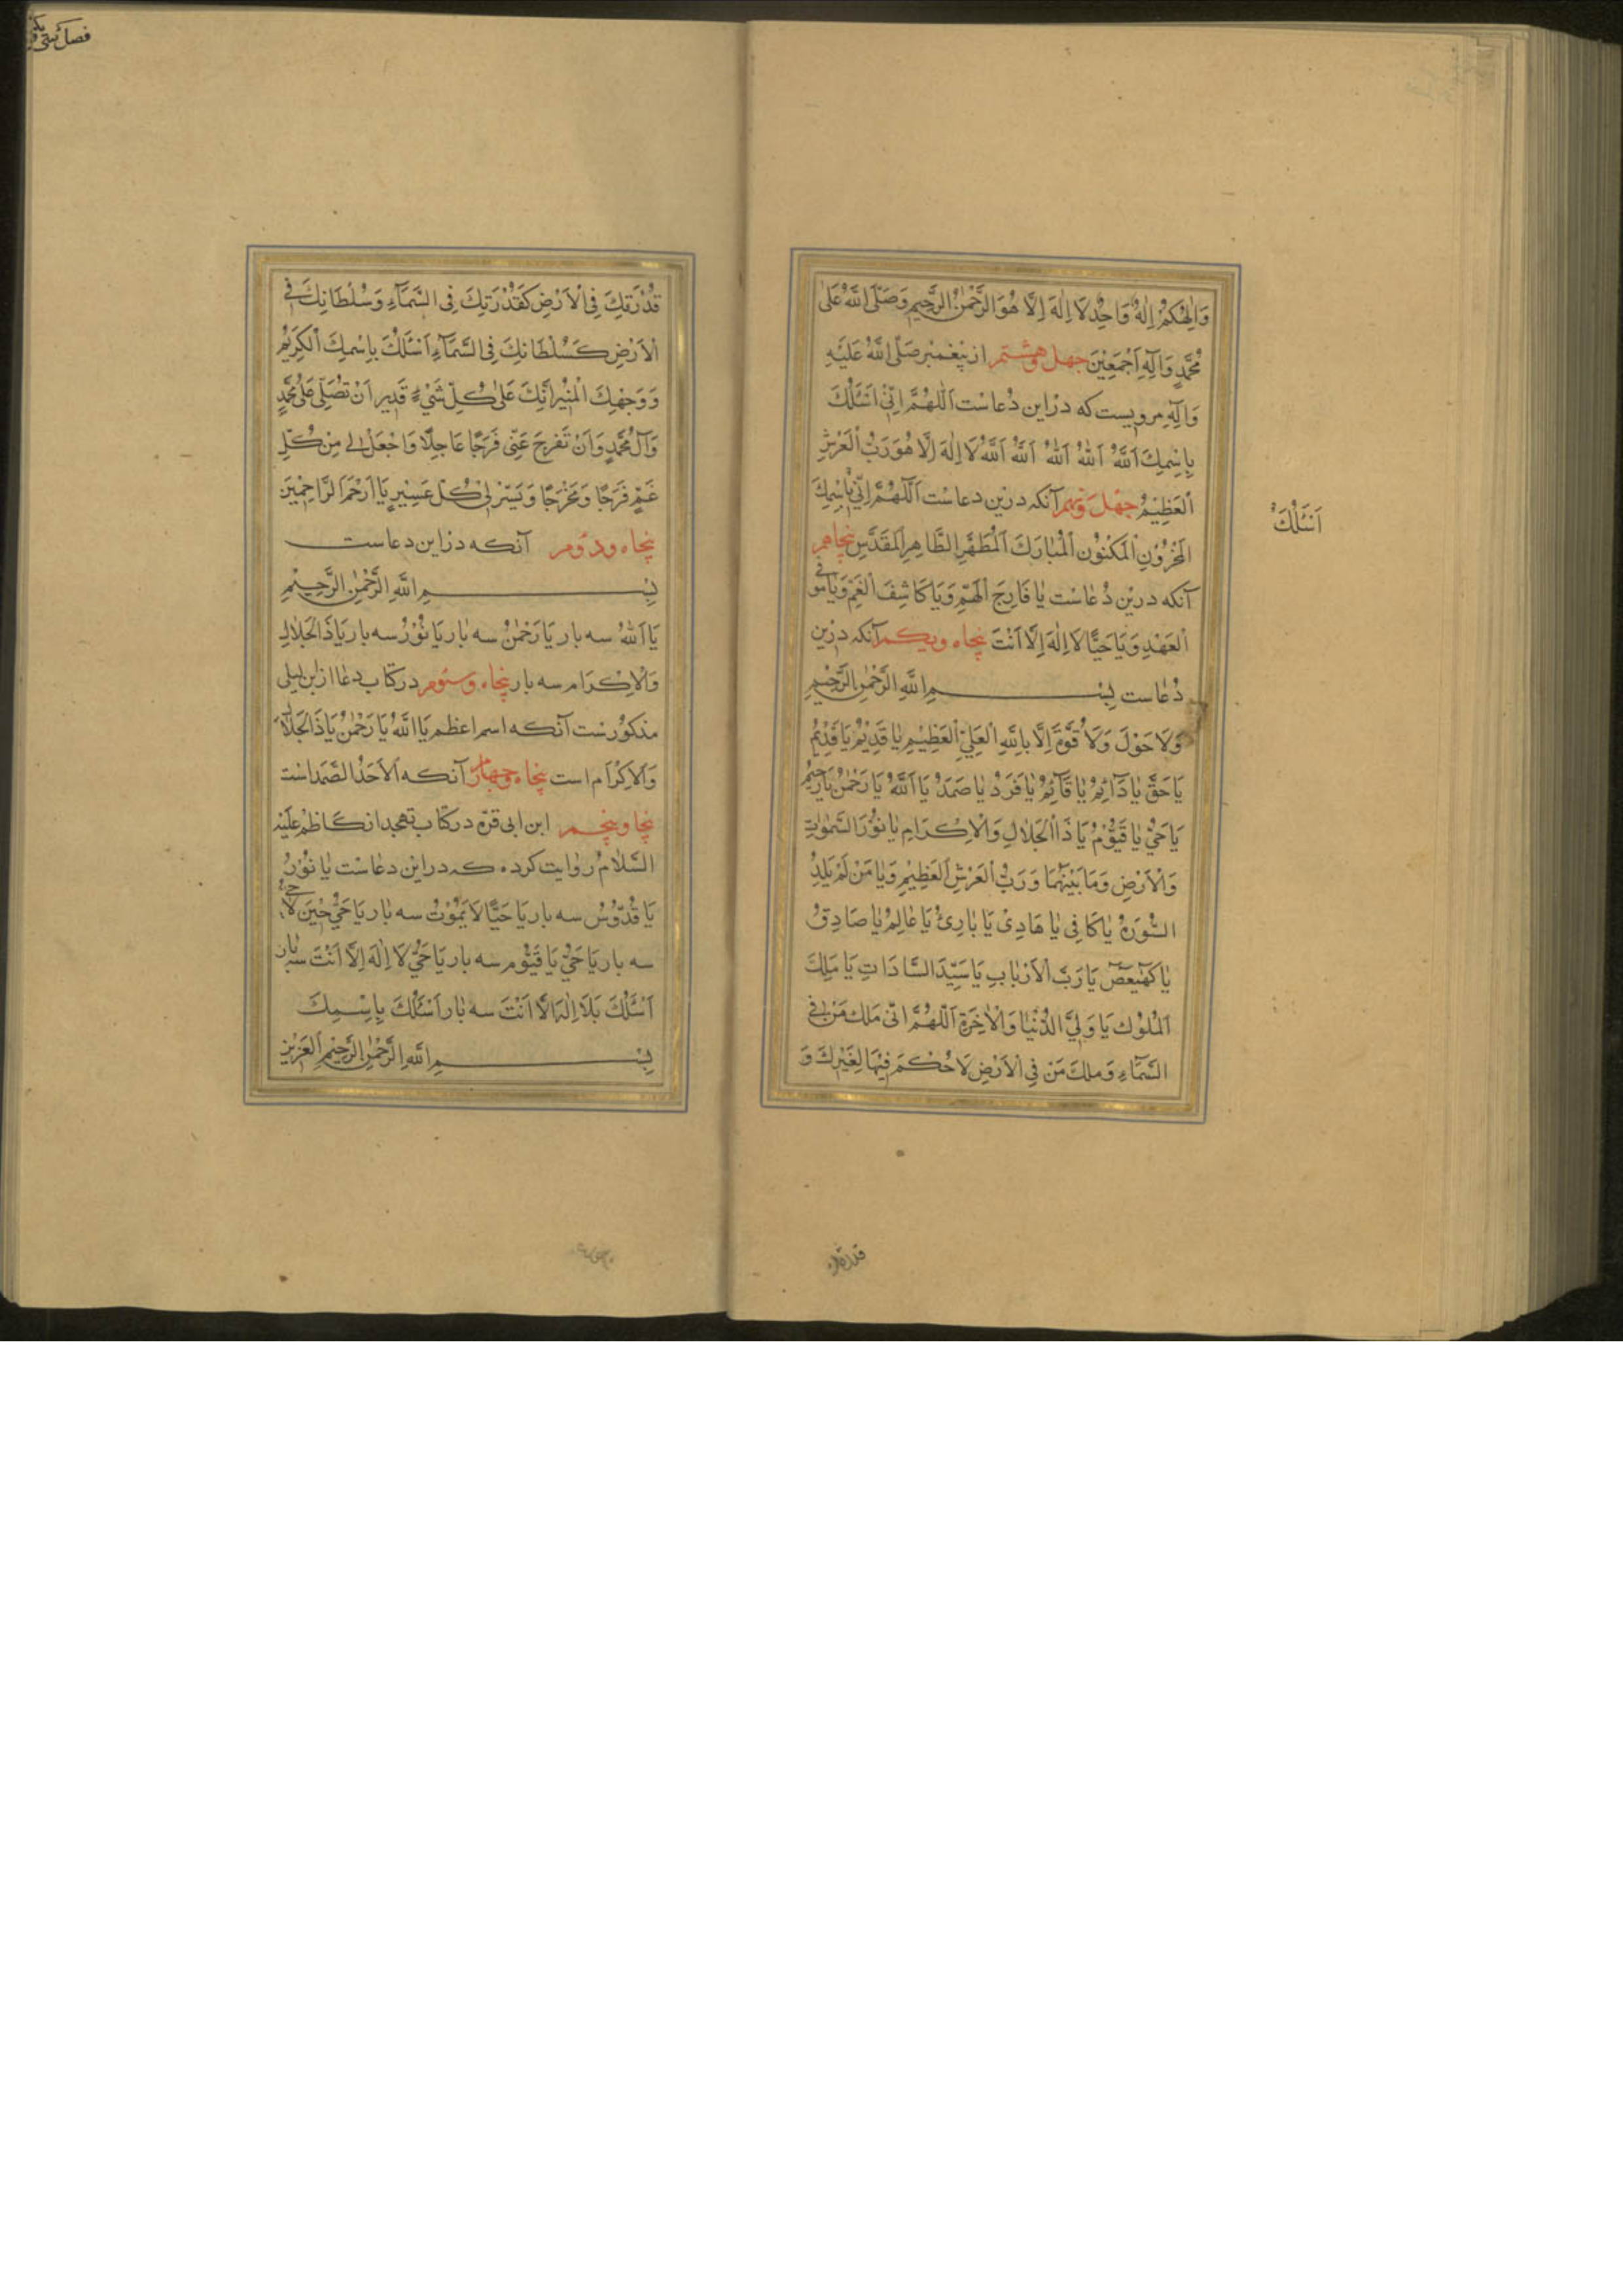 وَاِلٰهُكُمْ اِلٰهٌ وَاحِدٌ لَا اِلٰهَ اِلَّا هُوَ الرَّحْمٰنُ الرَّحِيمُ وَصَلَّى اللَّهُ عَلٰى
مُحَمَّدٍ وَآلِهِ اَجْمَعِيْنَ جهل وهشتم از پَيْغمبر صَلَّى اللَّهُ عَلَيْهِ
وَآلِهِ مرويست كه دراين دُعاست اَللّٰهُمَّ اِنِّىْ اَسْئَلُكَ
بِاِسْمِكَ اَللَّهُ اَللَّهُ اَللَّهُ اَللَّهُ اَللَّهُ لَا اِلٰهَ اِلَّا هُوَ رَبُّ الْعَرْشِ
اَلْعَظِيْمُ جهل ونهم آنكه درين دعاست اَللّٰهُمَّ اِنِّىْ بِاِسْمِكَ
اَسْئَلُكَ
الْمَخْزُوْنِ الْمَكْنُوْنِ الْمُبَارَكَ الْمُطَهَّرِ الطَّاهِرِ الْمُقَدَّسِ پنجاهم
آنكه درين دُعاست يَا فَارِجَ الْهَمِّ وَيَا كَاشِفَ الْغَمِّ وَيَا مُوفِى
الْعَهْدِ وَيَا حَيًّا لَا اِلٰهَ اِلَّا اَنْتَ پنجاه ويكم آنكه درين
دُعاست بِسْمِ اللَّهِ الرَّحْمٰنِ الرَّحِيْمِ
وَلَا حَوْلَ وَلَا قُوَّةَ اِلَّا بِاللَّهِ الْعَلِىِّ الْعَظِيْمِ يَا قَدِيْمُ يَا قَدِيْمُ
يَا حَقُّ يَا دَآئِمُ يَا قَآئِمُ يَا فَرْدُ يَا صَمَدُ يَا اَللَّهُ يَا رَحْمٰنُ يَا رَحِيْمُ
يَا حَىُّ يَا قَيُّوْمُ يَا ذَا الْجَلَالِ وَالْاِكْرَامِ يَا نُوْرَ السَّمٰوَاتِ
وَالْاَرْضِ وَمَا بَيْنَهُمَا وَرَبَّ الْعَرْشِ الْعَظِيْمِ وَيَا مَنْ لَمْ يَلِدْ
السُّوْرَةُ يَا كَافِى يَا هَادِىْ يَا بَارِئُ يَا عَالِمُ يَا صَادِقُ
يَا كٓهٰيٰعٓصٓ يَا رَبَّ الْاَرْبَابِ يَا سَيِّدَ السَّادَاتِ يَا مَلِكَ
الْمُلُوْكِ يَا وَلِىَّ الدُّنْيَا وَالْاٰخِرَةِ اَللّٰهُمَّ اِنِّى مَلِكَ مَنْ فِى
السَّمَآءِ وَمَلِكَ مَنْ فِى الْاَرْضِ لَا حُكْمَ فِيْهَا لِغَيْرِكَ وَ
قدرتك
قُدْرَتِكَ فِى الْاَرْضِ كَقُدْرَتِكَ فِى السَّمَآءِ وَسُلْطَانِكَ فِى
الْاَرْضِ كَسُلْطَانِكَ فِى السَّمَآءِ اَسْئَلُكَ بِاِسْمِكَ الْكَرِيْمِ
وَوَجْهِكَ الْمُنِيْرِ اِنَّكَ عَلٰى كُلِّ شَىْءٍ قَدِيْر اَنْ تُصَلِّىَ عَلٰى مُحَمَّدٍ
وَآلِ مُحَمَّدٍ وَاَنْ تَفْرِجَ عَنِّى فَرَجًا عَاجِلًا وَاجْعَلْ لِى مِنْ كُلِّ
غَمٍّ فَرَجًا وَمَخْرَجًا وَيَسِّرْ لِىْ كُلَّ عَسِيْرٍ يَا اَرْحَمَ الرَّاحِمِيْنَ
پنجاه ودوم آنكه دراين دعاست
بِسْمِ اللَّهِ الرَّحْمٰنِ الرَّحِيْمِ
يَا اَللَّهُ سه بار يَا رَحْمٰنُ سه بار يَا نُوْرُ سه بار يَا ذَا الْجَلَالِ
وَالْاِكْرَام سه بار پنجاه وسوم در كتاب دعا از ابن ليلى
مذكورست آنكه اسم اعظم يَا اَللَّهُ يَا رَحْمٰنُ يَا ذَا الْجَلَالِ
وَالْاِكْرَام است پنجاه وچهارم آنكه اَلْاَحَدُ الصَّمَد است
پنجا وپنجم ابن ابى قرّه در كتاب تهجد از كاظم عليه
السَّلَامُ روايت كرده كه دراين دعاست يَا نُوْرُ
يَا قُدُّوْسُ سه بار يَا حَيًّا لَا يَمُوْتُ سه بار يَا حَىُّ حِيْنَ لَا حَىَّ
سه بار يَا حَىُّ يَا قَيُّوْم سه بار يَا حَىُّ لَا اِلٰهَ اِلَّا اَنْتَ سه بار
اَسْئَلُكَ بِلَا اِلٰهَ اِلَّا اَنْتَ سه بار اَسْئَلُكَ بِاِسْمِكَ
بِسْمِ اللَّهِ الرَّحْمٰنِ الرَّحِيْمِ الْعَزِيْزِ